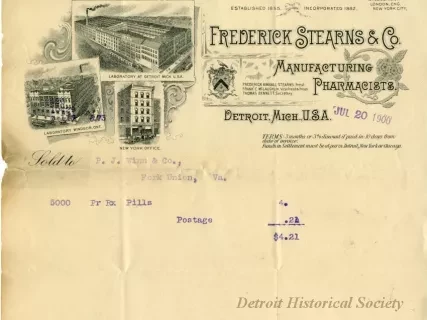 ESTABLISHED 1855. INCORPORATED 1882.
LONDON, ENG.
NEW YORK CITY.
FREDERICK STEARNS & CO.
MANUFACTURING
PHARMACISTS.
LABORATORY AT DETROIT MICH. U.S.A.
LABORATORY, WINDSOR, ONT.
NEW YORK OFFICE.
DETROIT, MICH. U.S.A.
JUL 20 1908
TERMS - 3 months or
if paid in 10 days from
date of invoice.
Funds in Settlement must be at par in Detroit, New York or Chicago.
Sold to P. J. Winn & Co.,
Fork Union, Va.
5000 Pr Rx Pills 4.
Postage .21
$4.21
Detroit Historical Society